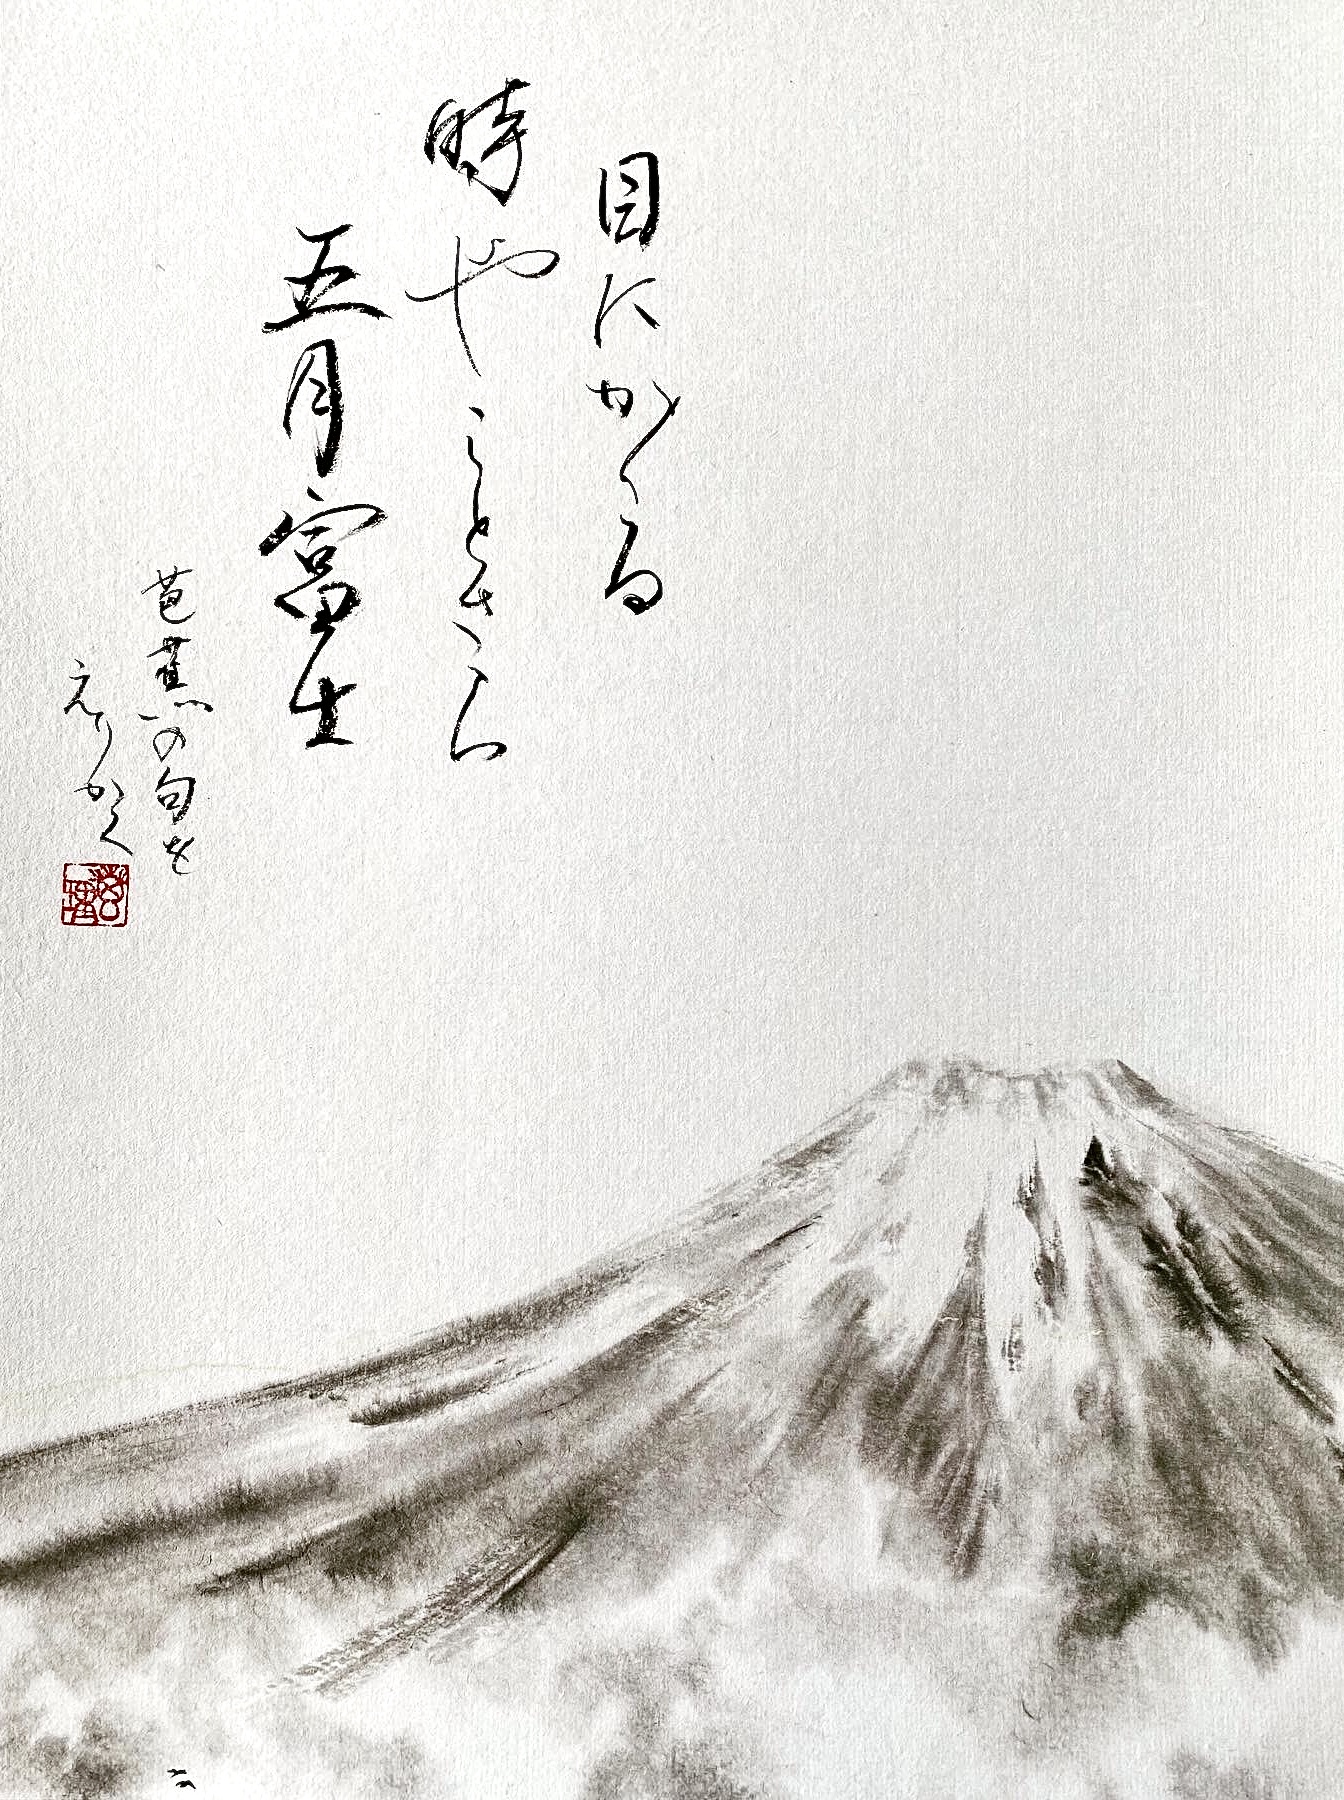 目にかゝる
時やことさら
五月富士
芭蕉の句を
えりかく